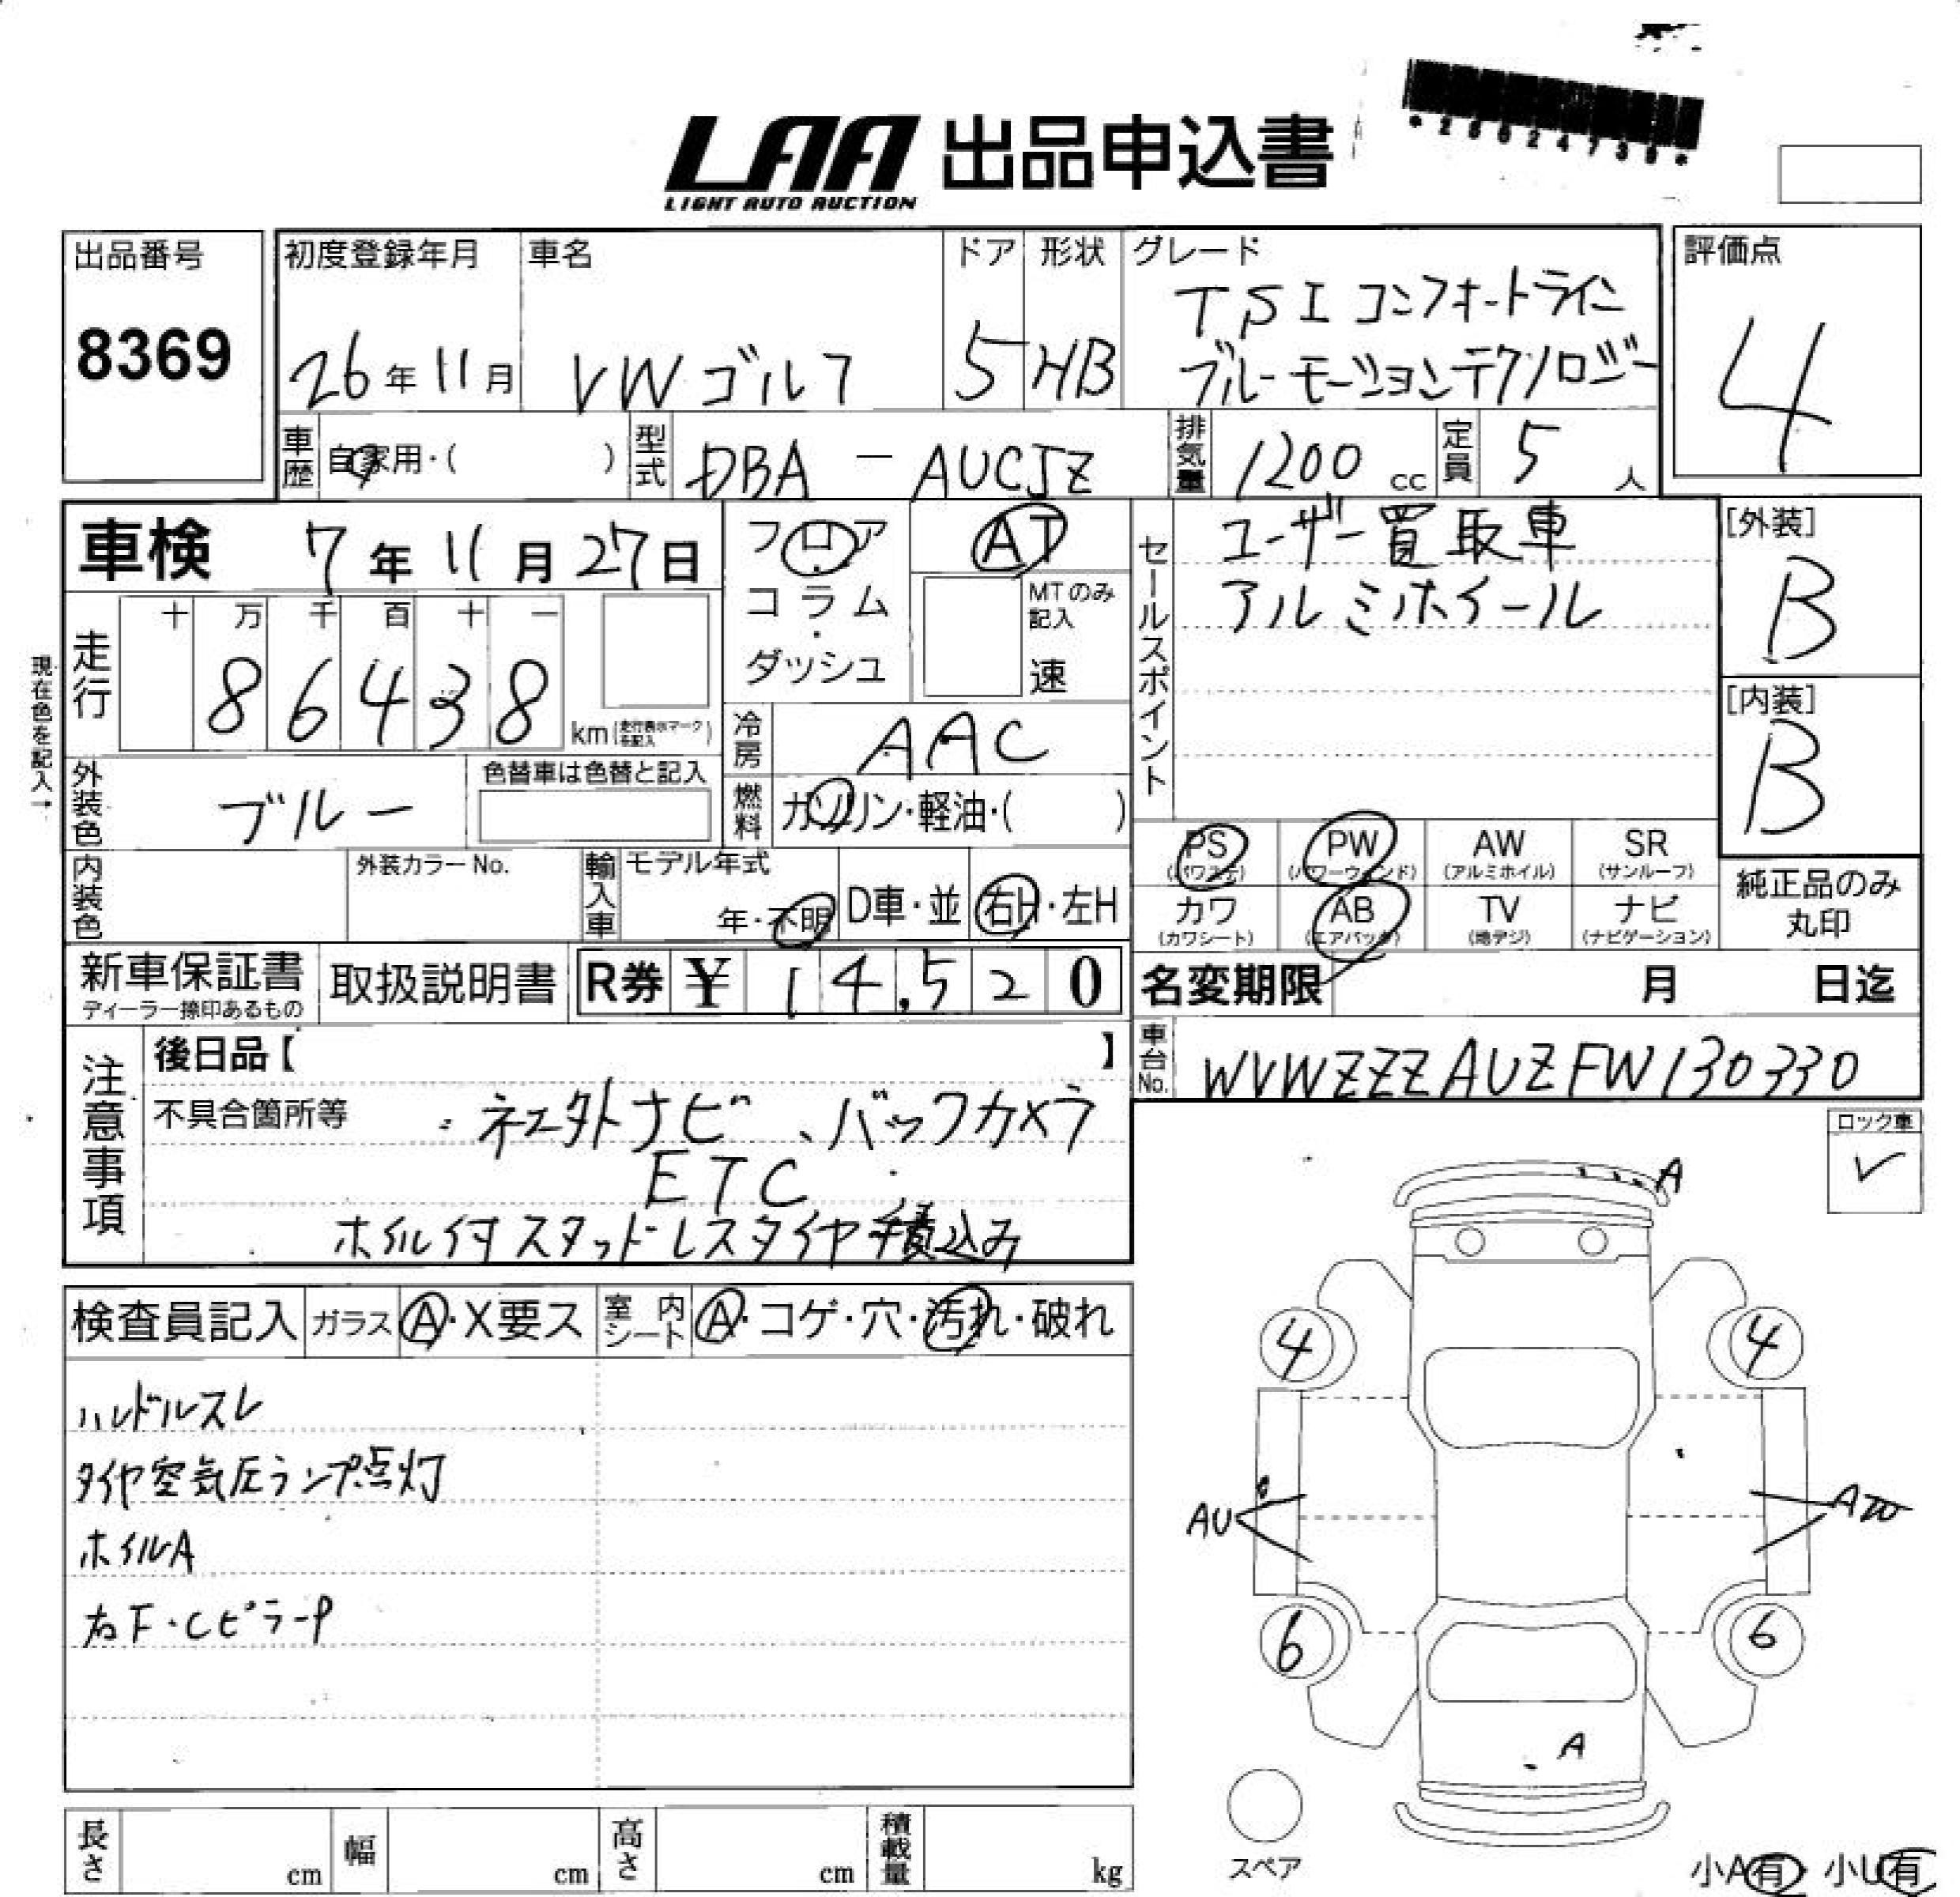 LAA 出品申込書
LIGHT AUTO AUCTION
出品番号
8369
初度登録年月
26年11月
車名
VW ゴルフ
ドア
5
形状
HB
グレード
TSI コンフォートライン
ブルーモーションテクノロジー
評価点
4
車歴 自家用・( )
型式 DBA - AUCJZ
排気量 1200 cc
定員 5 人
車検 7年11月27日
フロア
コラム
・
ダッシュ
AT
MTのみ
記入
速
セールスポイント
ユーザー買取車
アルミホイール
[外装]
B
[内装]
B
現在色を記入→
走行
十 万 千 百 十 一
8 6 4 3 8 km (走行表示マークを記入)
冷房 AAC
外装色 ブルー
色替車は色替と記入
燃料 ガソリン・軽油・( )
内装色
外装カラーNo.
輸入車
モデル年式
年・不明
D車・並
右H・左H
PS (パワステ)
PW (パワーウィンド)
AW (アルミホイル)
SR (サンルーフ)
カワ (カワシート)
AB (エアバック)
TV (地デジ)
ナビ (ナビゲーション)
純正品のみ
丸印
新車保証書
ディーラー捺印あるもの
取扱説明書
R券 ¥ 14,520
名変期限 月 日迄
車台No. WVWZZZAUZFW130330
注意事項
後日品【 】
不具合箇所等
社外ナビ、バックカメラ
ETC
ホイル付スタッドレスタイヤ積込み
ロック車
✓
検査員記入
ガラス A・X要ス
室内シート A・コゲ・穴・汚れ・破れ
ハンドルスレ
タイヤ空気圧ランプ点灯
ホイルA
右F・CピラーP
A
4
4
AU
6
6
A
スペア
小A有・小U有
長さ cm
幅 cm
高さ cm
積載量 kg